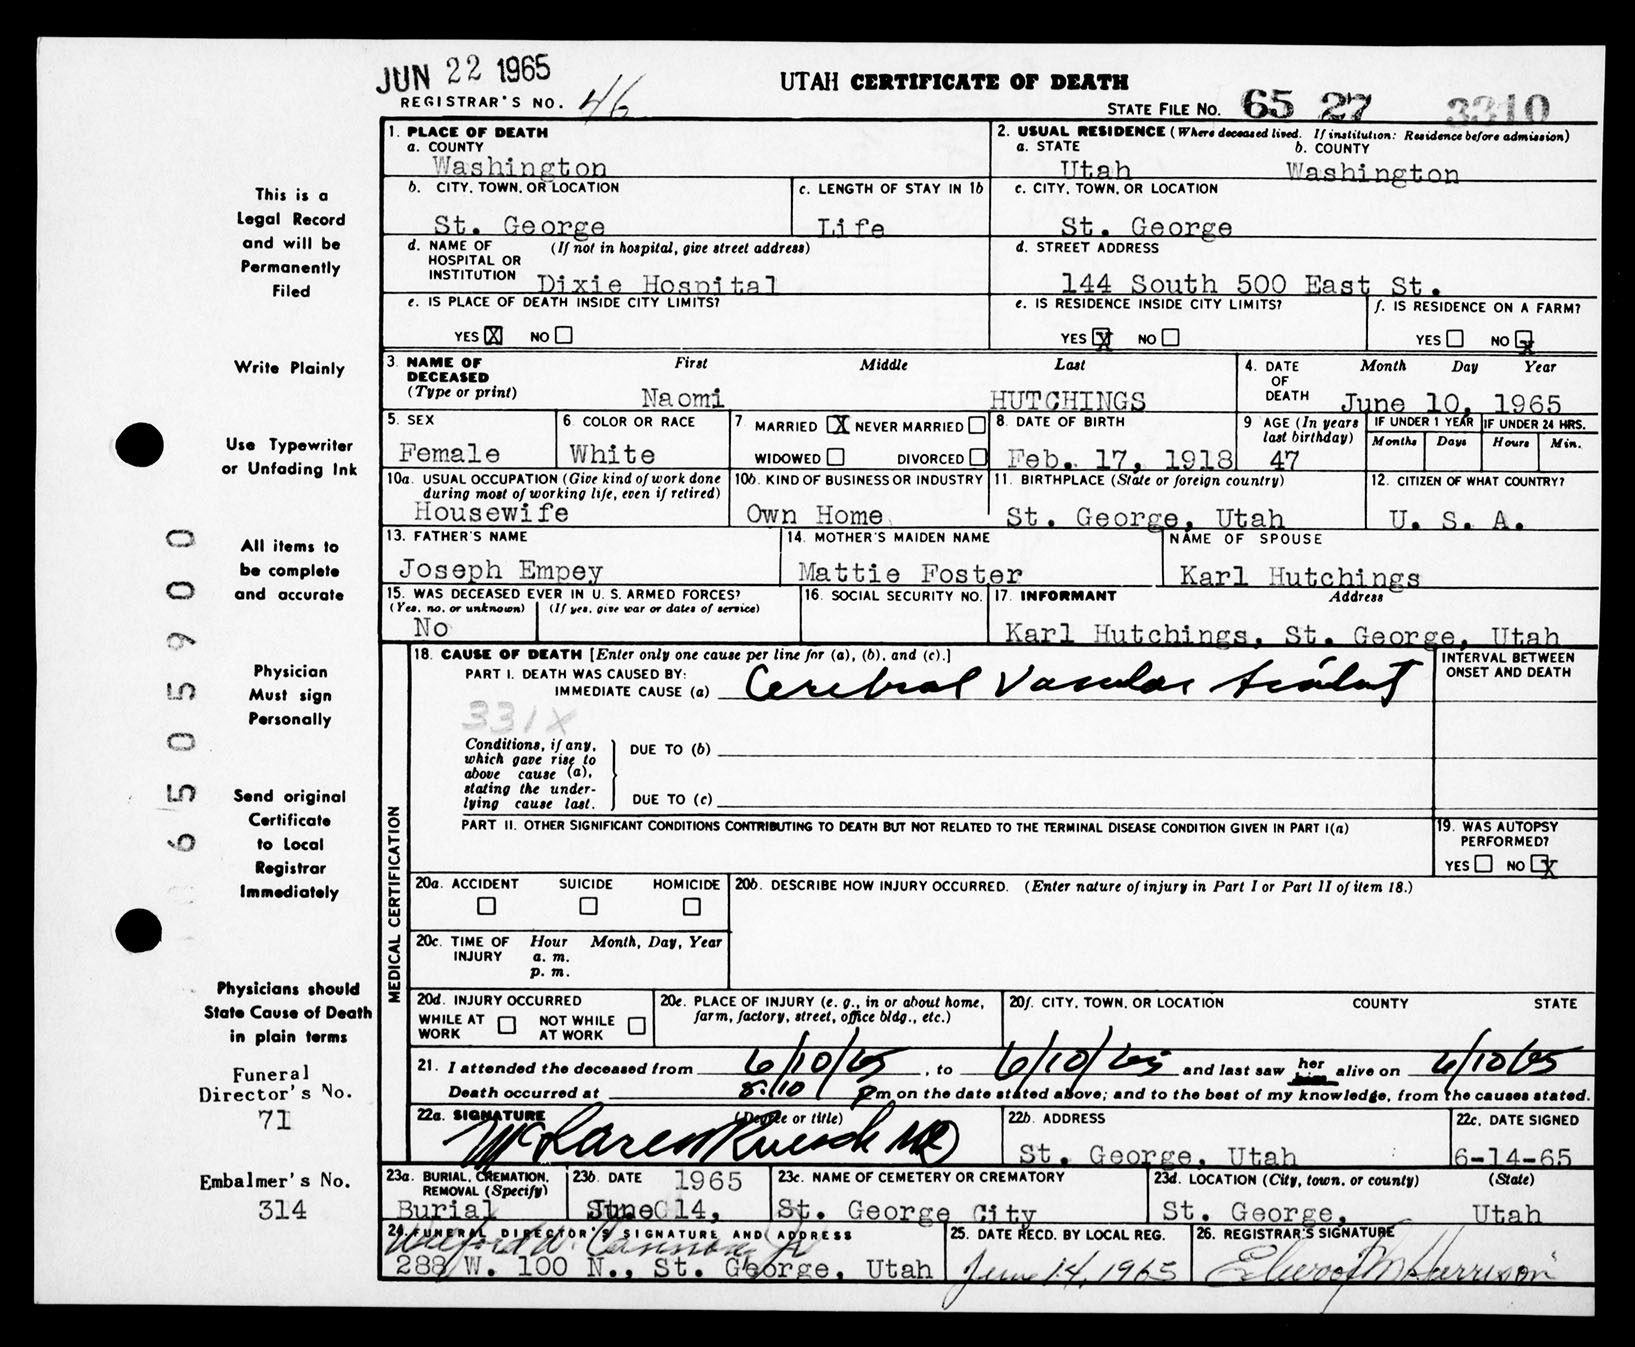 JUN 22 1965
UTAH CERTIFICATE OF DEATH
REGISTRAR'S NO. 46
STATE FILE NO. 65 27 3310
1. PLACE OF DEATH
a. COUNTY
Washington
2. USUAL RESIDENCE (Where deceased lived. If institution: Residence before admission)
a. STATE b. COUNTY
Utah Washington
b. CITY, TOWN, OR LOCATION
St. George
c. LENGTH OF STAY IN 1b
Life
c. CITY, TOWN, OR LOCATION
St. George
d. NAME OF (If not in hospital, give street address)
HOSPITAL OR
INSTITUTION Dixie Hospital
d. STREET ADDRESS
144 South 500 East St.
e. IS PLACE OF DEATH INSIDE CITY LIMITS?
YES X NO
e. IS RESIDENCE INSIDE CITY LIMITS?
YES X NO
f. IS RESIDENCE ON A FARM?
YES NO X
3. NAME OF First Middle Last
DECEASED
(Type or print) Naomi HUTCHINGS
4. DATE Month Day Year
OF
DEATH June 10, 1965
5. SEX
Female
6 COLOR OR RACE
White
7 MARRIED X NEVER MARRIED
WIDOWED DIVORCED
8. DATE OF BIRTH
Feb. 17, 1918
9 AGE (In years
last birthday)
47
IF UNDER 1 YEAR IF UNDER 24 HRS.
Months Days Hours Min.
10a. USUAL OCCUPATION (Give kind of work done
during most of working life, even if retired)
Housewife
10b. KIND OF BUSINESS OR INDUSTRY
Own Home
11. BIRTHPLACE (State or foreign country)
St. George, Utah
12. CITIZEN OF WHAT COUNTRY?
U. S. A.
13. FATHER'S NAME
Joseph Empey
14. MOTHER'S MAIDEN NAME
Mattie Foster
NAME OF SPOUSE
Karl Hutchings
15. WAS DECEASED EVER IN U. S. ARMED FORCES?
(Yes, no. or unknown) (If yes, give war or dates of service)
No
16. SOCIAL SECURITY NO.
17. INFORMANT Address
Karl Hutchings, St. George, Utah
MEDICAL CERTIFICATION
18. CAUSE OF DEATH [Enter only one cause per line for (a), (b), and (c).]
PART I. DEATH WAS CAUSED BY:
IMMEDIATE CAUSE (a) Cerebral Vascular Accident
331X
INTERVAL BETWEEN
ONSET AND DEATH
Conditions, if any,
which gave rise to
above cause (a),
stating the under-
lying cause last.
DUE TO (b)
DUE TO (c)
PART II. OTHER SIGNIFICANT CONDITIONS CONTRIBUTING TO DEATH BUT NOT RELATED TO THE TERMINAL DISEASE CONDITION GIVEN IN PART I(a)
19. WAS AUTOPSY
PERFORMED?
YES NO X
20a. ACCIDENT SUICIDE HOMICIDE
20b. DESCRIBE HOW INJURY OCCURRED. (Enter nature of injury in Part I or Part II of item 18.)
20c. TIME OF Hour Month, Day, Year
INJURY a. m.
p. m.
20d. INJURY OCCURRED
WHILE AT NOT WHILE
WORK AT WORK
20e. PLACE OF INJURY (e. g., in or about home,
farm, factory, street, office bldg., etc.)
20f. CITY, TOWN, OR LOCATION COUNTY STATE
21. I attended the deceased from 6/10/65, to 6/10/65 and last saw her him alive on 6/10/65
Death occurred at 8:10 Pm on the date stated above; and to the best of my knowledge, from the causes stated.
22a. SIGNATURE (Degree or title)
McLaren Ruesch MD
22b. ADDRESS
St. George, Utah
22c. DATE SIGNED
6-14-65
23a. BURIAL, CREMATION,
REMOVAL (Specify)
Burial
23b. DATE 1965
June 14,
23c. NAME OF CEMETERY OR CREMATORY
St. George City
23d. LOCATION (City, town, or county) (State)
St. George, Utah
24. FUNERAL DIRECTOR'S SIGNATURE AND ADDRESS
Wilford W. Cannon Jr
288 W. 100 N., St. George, Utah
25. DATE RECD. BY LOCAL REG.
June 14, 1965
26. REGISTRAR'S SIGNATURE
Elwood M Harrison
This is a
Legal Record
and will be
Permanently
Filed
Write Plainly
Use Typewriter
or Unfading Ink
All items to
be complete
and accurate
Physician
Must sign
Personally
Send original
Certificate
to Local
Registrar
Immediately
Physicians should
State Cause of Death
in plain terms
Funeral
Director's No.
71
Embalmer's No.
314
6505900